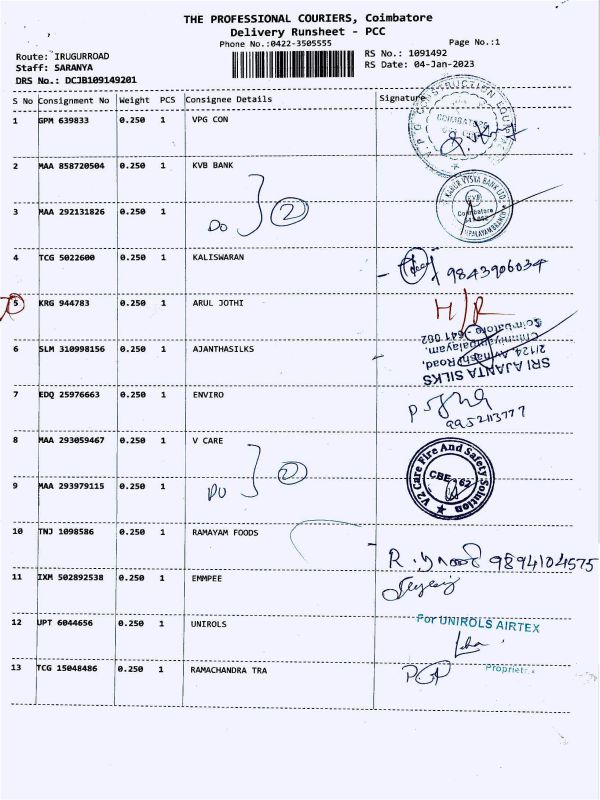 THE PROFESSIONAL COURIERS, Coimbatore
Delivery Runsheet - PCC
Phone No.:0422-3505555
Page No.:1
Route: IRUGURROAD
RS No.: 1091492
Staff: SARANYA
RS Date: 04-Jan-2023
DRS No.: DCJB109149201
S No Consignment No Weight PCS Consignee Details Signature
1 GPM 639833 0.250 1 VPG CON
COIMBATORE
2 MAA 858720504 0.250 1 KVB BANK
KARUR VYSYA BANK LTD.
Coimbatore
3 MAA 292131826 0.250 1 DO 2
4 TCG 5022600 0.250 1 KALISWARAN 9843906034
5 KRG 944783 0.250 1 ARUL JOTHI H/R
6 SLM 310998156 0.250 1 AJANTHASILKS
SRI AJANTA SILKS
2/124, Avinashi Road,
Chinniyampalayam,
Coimbatore - 641 062
7 EDQ 25976663 0.250 1 ENVIRO
9952113777
8 MAA 293059467 0.250 1 V CARE
V2 Care Fire And Safety Solution
CBE-62
9 MAA 293979115 0.250 1 DO 2
10 TNJ 1098586 0.250 1 RAMAYAM FOODS
9894104575
11 IXM 502892538 0.250 1 EMMPEE
12 UPT 6044656 0.250 1 UNIROLS
For UNIROLS AIRTEX
13 TCG 15048486 0.250 1 RAMACHANDRA TRA